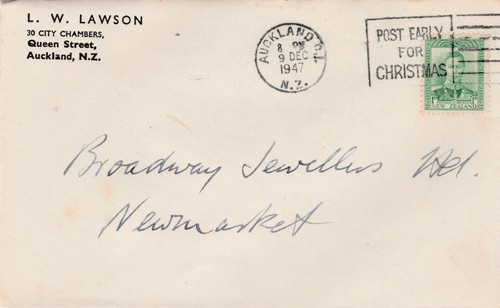 L. W. LAWSON
30 CITY CHAMBERS,
Queen Street,
Auckland, N.Z.
AUCKLAND C.1.
8 PM
9 DEC
1947
N.Z.
POST EARLY
FOR
CHRISTMAS
NEW ZEALAND
Broadway Jewellers Ltd.
Newmarket